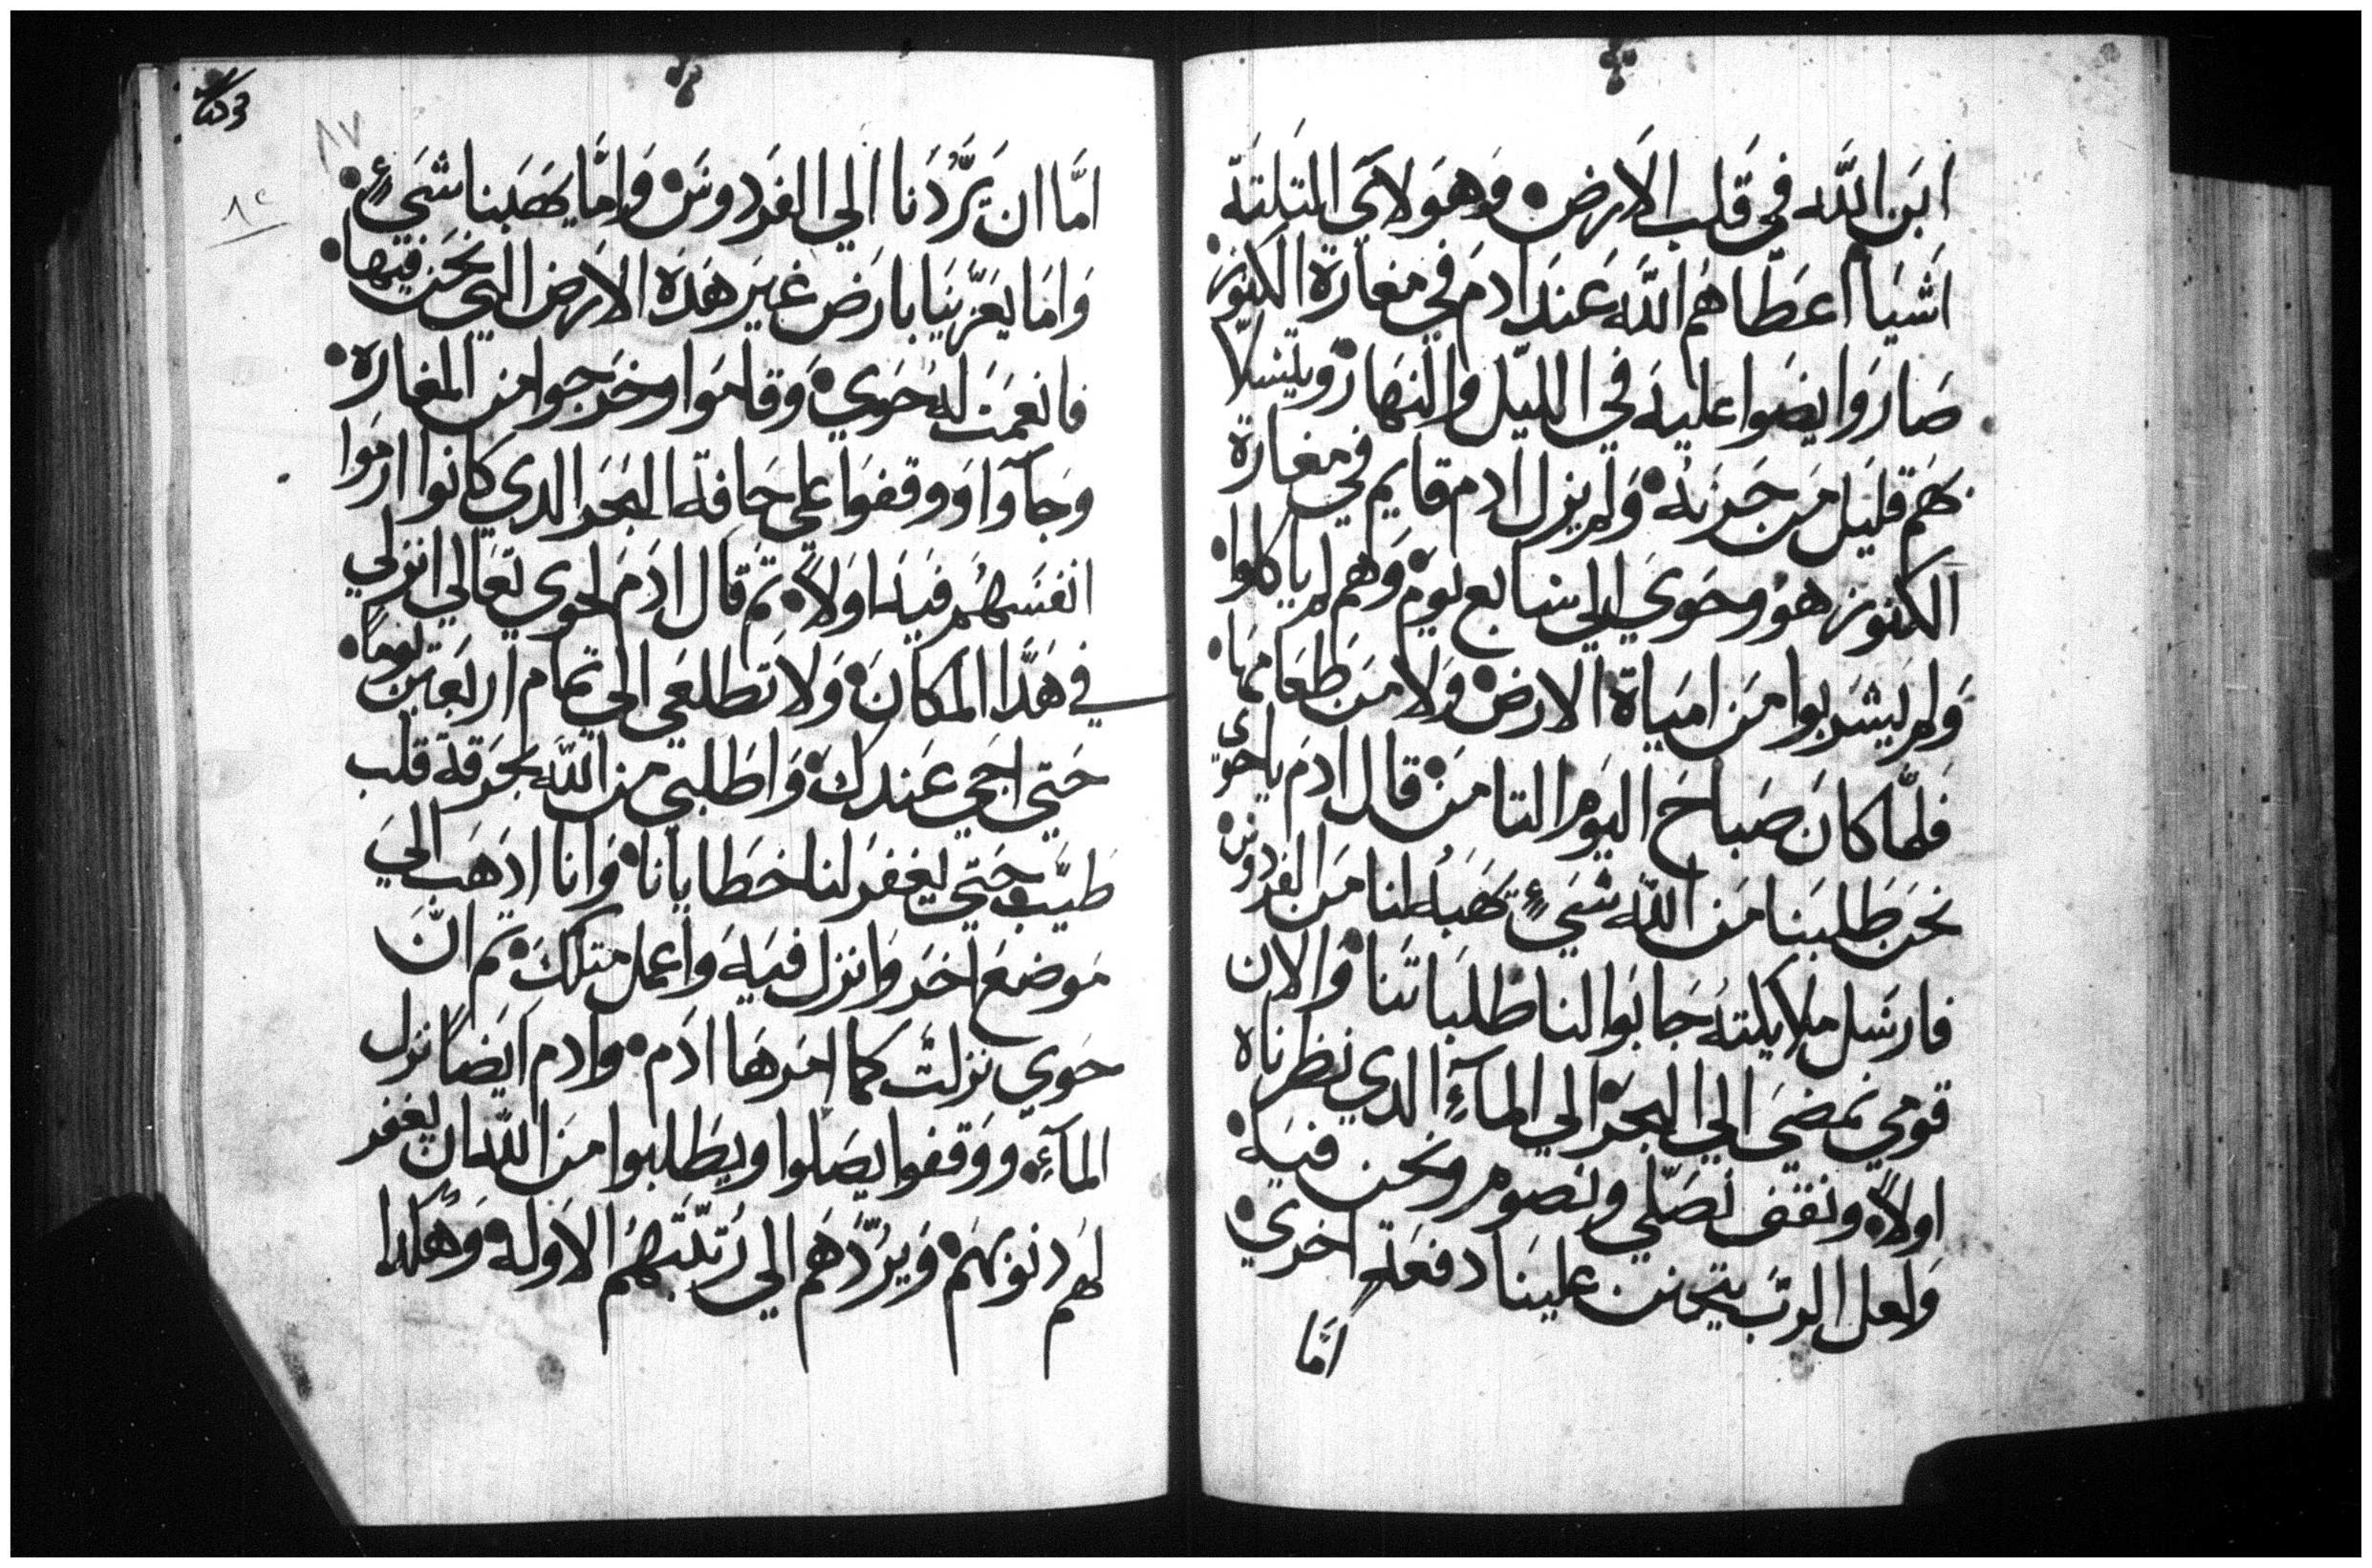 ابَن اللَّه في قَلب الاَرض • وَهَولاَي التَلتَة
اَشيَا اعَطَاهُم اللَّه عَندَ ادمَ في مغاَرة الكنوَز •
صَارَوا يضَوا عَليَه في الليَل والنهَار • وَيتسَلاَ
بَهَم قَليَل مَن حَزنَه • وَلم يزل ادم قايم في مغارَة
الكنوز هوُ وحَوَيَ الي سَابع يَومَ وَهم لم ياكلوا •
وَلم يَشرَبوا مَن اميَاة الارض • وَلا مَن طَعَامهَا •
فَلمَّا كانَ صَباحَ اليَوم التامَن • قال ادمَ ياحَوي
نحَن طَلبَنا مَن اللَّه شَيءٍ يَهَبهُ لنا مَن الفردوسَ •
فارسَل ملايكتهُ جَابَوا لنا طَلبَاتنا • وَالان
قومي نمضيَ الي البحَر • الي المآءِ الدي نظرناه
اولاً • ونقف نصَلّي ونصوم ونحن فيَه •
وَلعل الربَّ يتحنن عليَنا دفعَة اخري •
امَّا
امَّا ان يَرُدَّنا الي الفرَدوسَ • وَامَّا يهَبَنا شَيءٍ •
وَامَا يعَزّينَا بارَض غيَر هَدَه الارَض التي نحَن فيَها •
فانعَمَت لهُ حَوَي • وَقامَوا وخَرجوا من المغارَه •
وجَآوَا وَوقفوَا علي حَافة البحَر الدي كانوا ارمَوا
انفسَهُم فيَه اوَلاً • تم قال ادَمَ لحوَي تعَالي انزلي
في هَدَا المكانَ • وَلا تَطلعَي الي تمَام اربَعَين يوماً •
حَتي اجي عَندك • وَاطَلبي من اللَّه بحَرقة قلب
طَيّب حَتي يغفرَ لنا خَطايانا • وَانا ادهَب الي
مَوضعَ اخَر وَانزل فيَه وَاعمل متلك • تم انَّ
حَوي نزلتَ كما امَرهَا ادَم • وادم ايضَاً نزل
المآءِ • ووَقفوا يصَلوا ويطَلبوا منَ اللَّه ان يغفر
لهُم دنوبَهمَ • وَيرُدَّهَم الي رُتبَتهمُ الاوَله • وَهَكدا